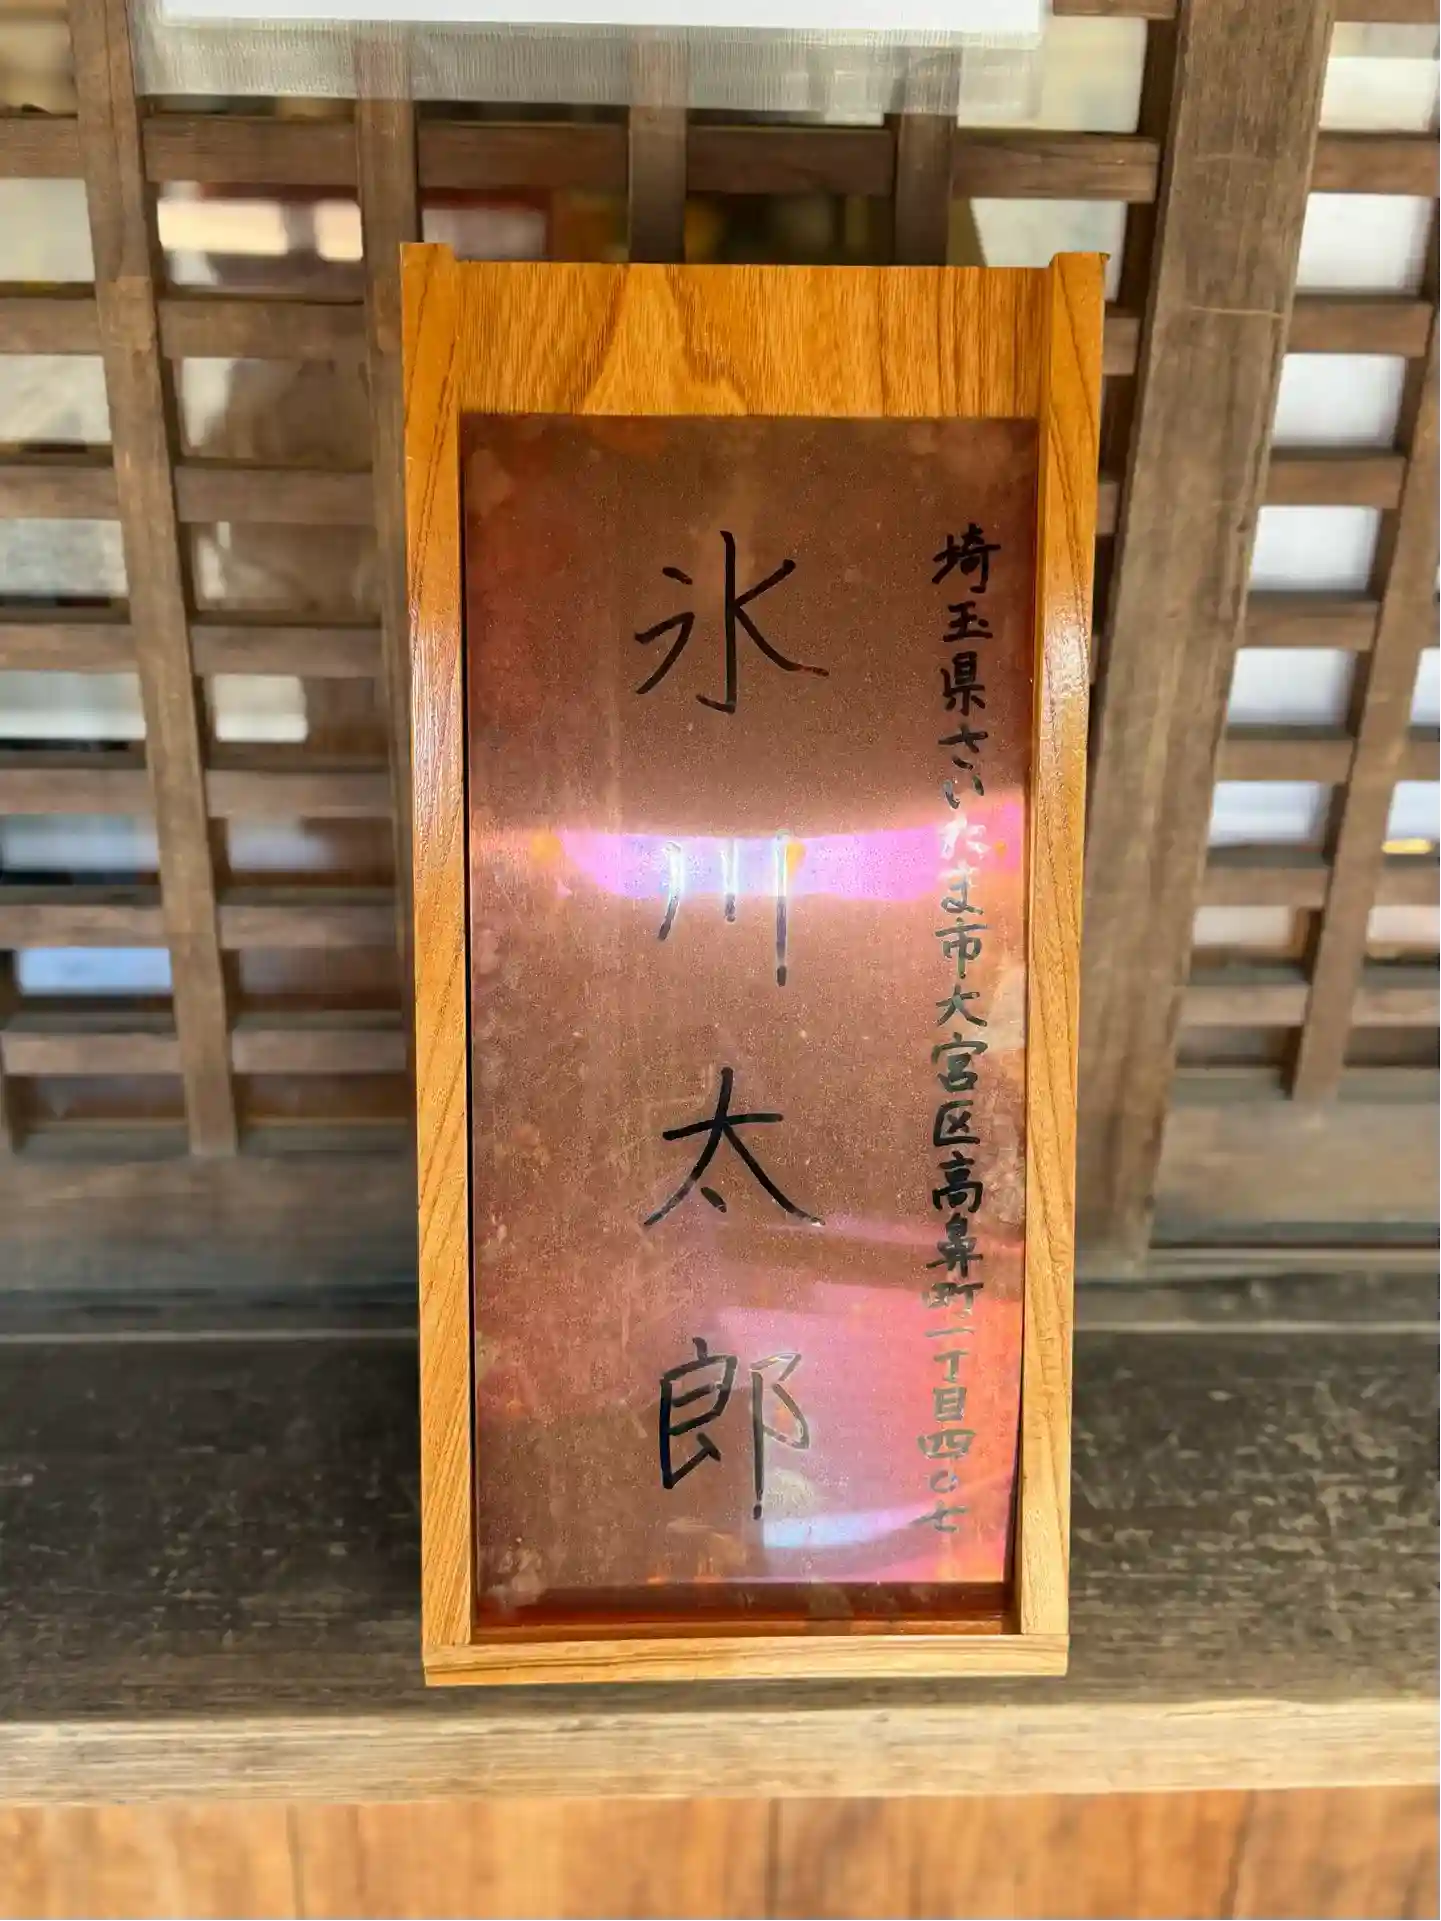 埼玉県さいたま市大宮区高鼻町一丁目四〇七
氷川太郎